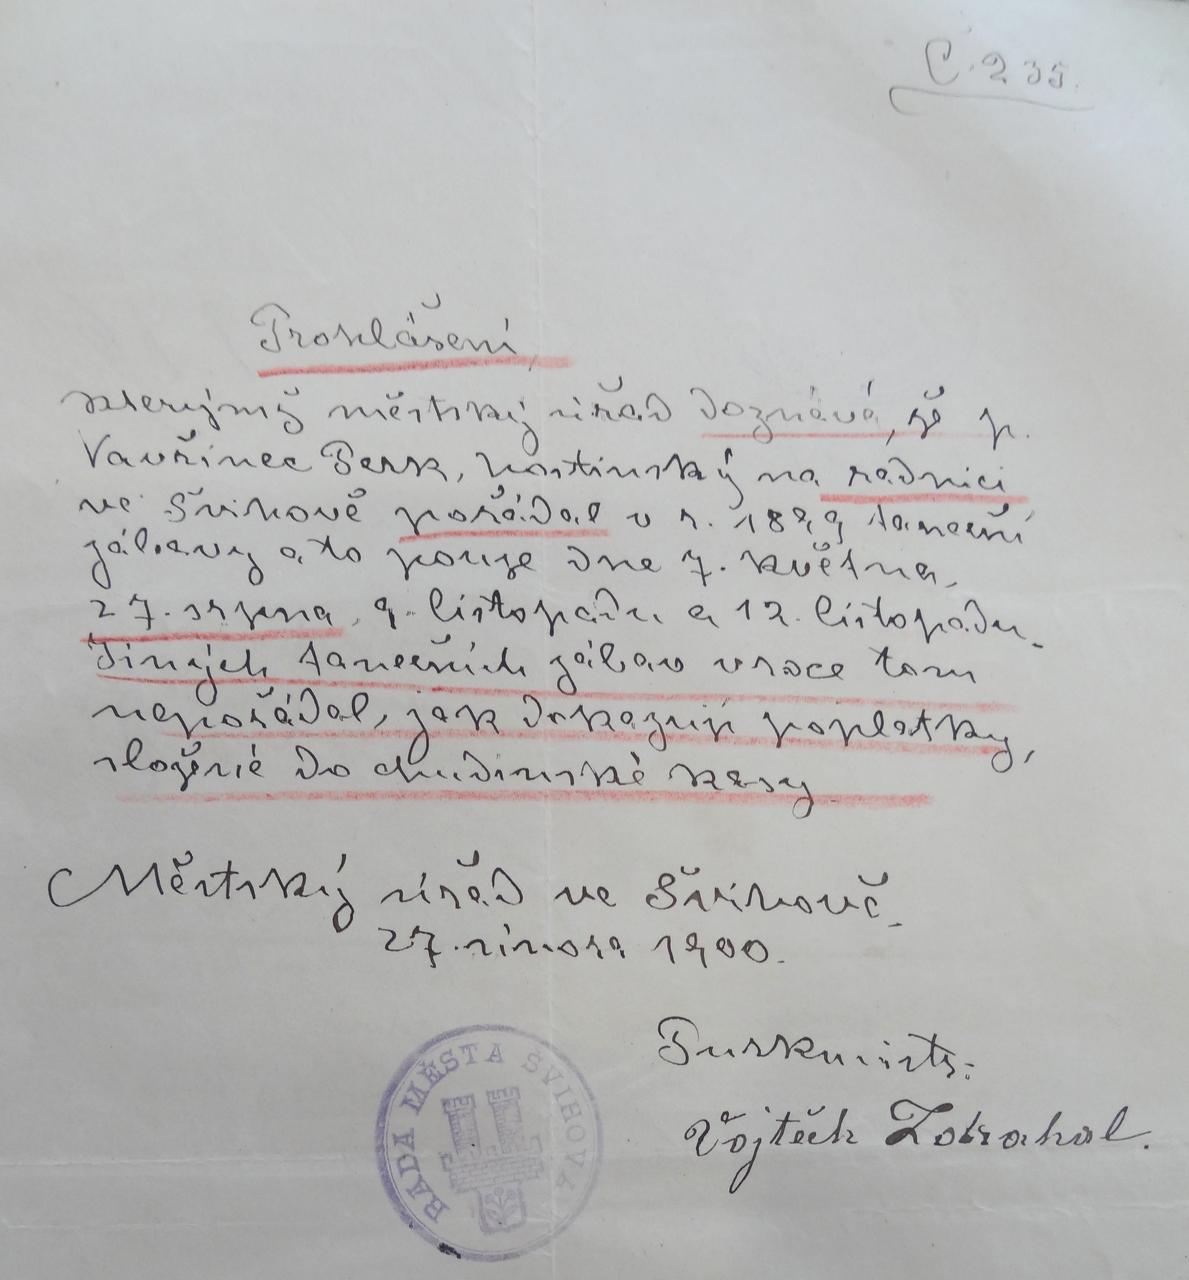 Č. 235.
Prohlášení,
kterýmž městský úřad doznává, že p.
Vavřinec Perk, hostinský na radnici
ve Švihově pořádal v r. 1899 taneční
zábavy a to pouze dne 7. května,
27. srpna, 9. listopadu a 12. listopadu.
Jiných tanečních zábav v roce tom
nepořádal, jak dokazují poplatky,
složené do chudinské kasy
Městský úřad ve Švihově.
27. února 1900.
Purkmistr:
Vojtěch
RADA MĚSTA ŠVIHOVA